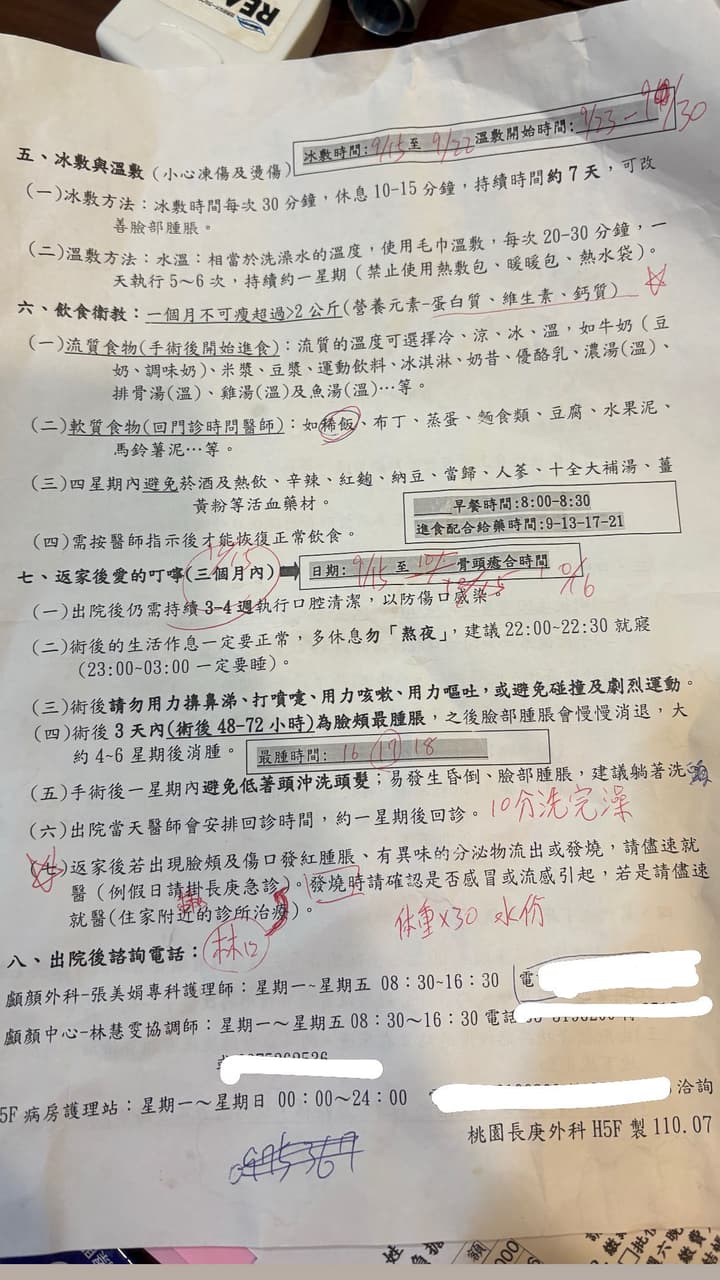 REA
冰敷時間: 9/15 至 9/22 溫敷開始時間: 9/23 - 9/30
五、冰敷與溫敷(小心凍傷及燙傷)
(一)冰敷方法:冰敷時間每次 30 分鐘,休息 10-15 分鐘,持續時間約 7 天,可改
善臉部腫脹。
(二)溫敷方法:水溫:相當於洗澡水的溫度,使用毛巾溫敷,每次 20-30 分鐘,一
天執行 5~6 次,持續約一星期(禁止使用熱敷包、暖暖包、熱水袋)。
六、飲食衛教:一個月不可瘦超過>2 公斤(營養元素-蛋白質、維生素、鈣質)
(一)流質食物(手術後開始進食):流質的溫度可選擇冷、涼、冰、溫,如牛奶(豆
奶、調味奶)、米漿、豆漿、運動飲料、冰淇淋、奶昔、優酪乳、濃湯(溫)、
排骨湯(溫)、雞湯(溫)及魚湯(溫)…等。
(二)軟質食物(回門診時問醫師):如稀飯、布丁、蒸蛋、麵食類、豆腐、水果泥、
馬鈴薯泥…等。
(三)四星期內避免菸酒及熱飲、辛辣、紅麴、納豆、當歸、人蔘、十全大補湯、薑
黃粉等活血藥材。
早餐時間:8:00-8:30
進食配合給藥時間:9-13-17-21
(四)需按醫師指示後才能恢復正常飲食。
七、返家後愛的叮嚀(三個月內)
日期: 9/15 至 骨頭癒合時間
(一)出院後仍需持續 3-4 週執行口腔清潔,以防傷口感染
(二)術後的生活作息一定要正常,多休息勿「熬夜」,建議 22:00~22:30 就寢
(23:00~03:00 一定要睡)。
(三)術後請勿用力擤鼻涕、打噴嚏、用力咳嗽、用力嘔吐,或避免碰撞及劇烈運動。
(四)術後 3 天內(術後 48-72 小時)為臉頰最腫脹,之後臉部腫脹會慢慢消退,大
約 4~6 星期後消腫。
最腫時間: 16 17 18
(五)手術後一星期內避免低著頭沖洗頭髮;易發生昏倒、臉部腫脹,建議躺著洗頭
(六)出院當天醫師會安排回診時間,約一星期後回診。
10分洗完澡
(七)返家後若出現臉頰及傷口發紅腫脹、有異味的分泌物流出或發燒,請儘速就
醫(例假日請掛長庚急診)。發燒時請確認是否感冒或流感引起,若是請儘速
就醫(住家附近的診所治療)。
體重×30 水份
林口
八、出院後諮詢電話:
顱顏外科-張美娟專科護理師:星期一~星期五 08:30~16:30 電
顱顏中心-林慧雯協調師:星期一~星期五 08:30~16:30 電話
5F 病房護理站:星期一~星期日 00:00~24:00 洽詢
桃園長庚外科 H5F 製 110.07
姓
額